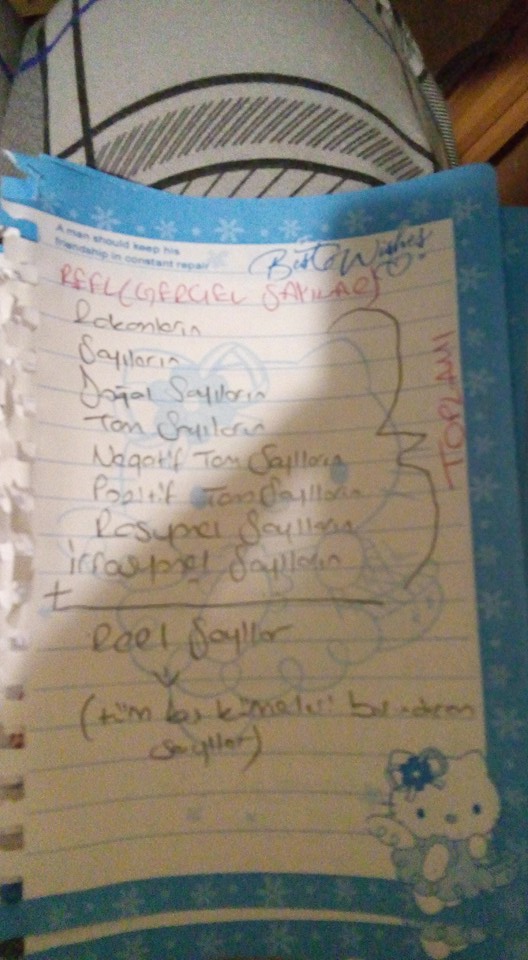 A man should keep his
friendship in constant repair
Best Wishes
REEL (GERÇEL SAYILAR)
Rakamların
Sayıların
Doğal Sayıların
Tam Sayıların
Negatif Tam Sayıların
Pozitif Tam Sayıların
Rasyonel Sayıların
irrasyonel Sayıların
TOPLAMI
+
Reel Sayılar
(tüm bu kümeleri
sayılar)